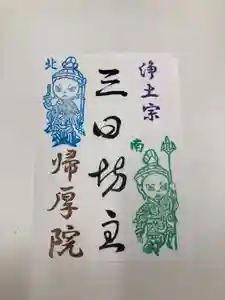 浄土宗
三日坊主
帰厚院
北
南